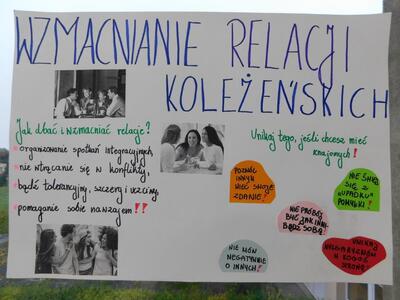 WZMACNIANIE RELACJI
KOLEŻEŃSKICH
Jak dbać i wzmacniać relacje?
organizowanie spotkań integracyjnych,
nie wtrącanie się w konflikty,
bądź tolerancyjny, szczery i uczciwy,
pomaganie sobie nawzajem!!
Unikaj tego, jeśli chcesz mieć
znajomych!
POZWÓL
INNYM
MIEĆ SWOJE
ZDANIE!
NIE ŚMIEJ
SIĘ Z
"UPADKU"
POMYŁKI!
NIE PRÓBUJ
BYĆ JAK INNY,
BĄDŹ SOBĄ!
NIE MÓW
NEGATYWNIE
O INNYCH!
UNIKAJ
W KOGOŚ
STRONĘ